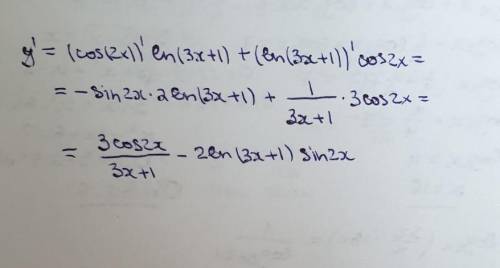 y' = (cos(2x))' ln(3x+1) + (ln(3x+1))' cos2x =
= -sin2x·2ln(3x+1) + 1/(3x+1) · 3cos2x =
= 3cos2x/(3x+1) - 2ln(3x+1) sin2x